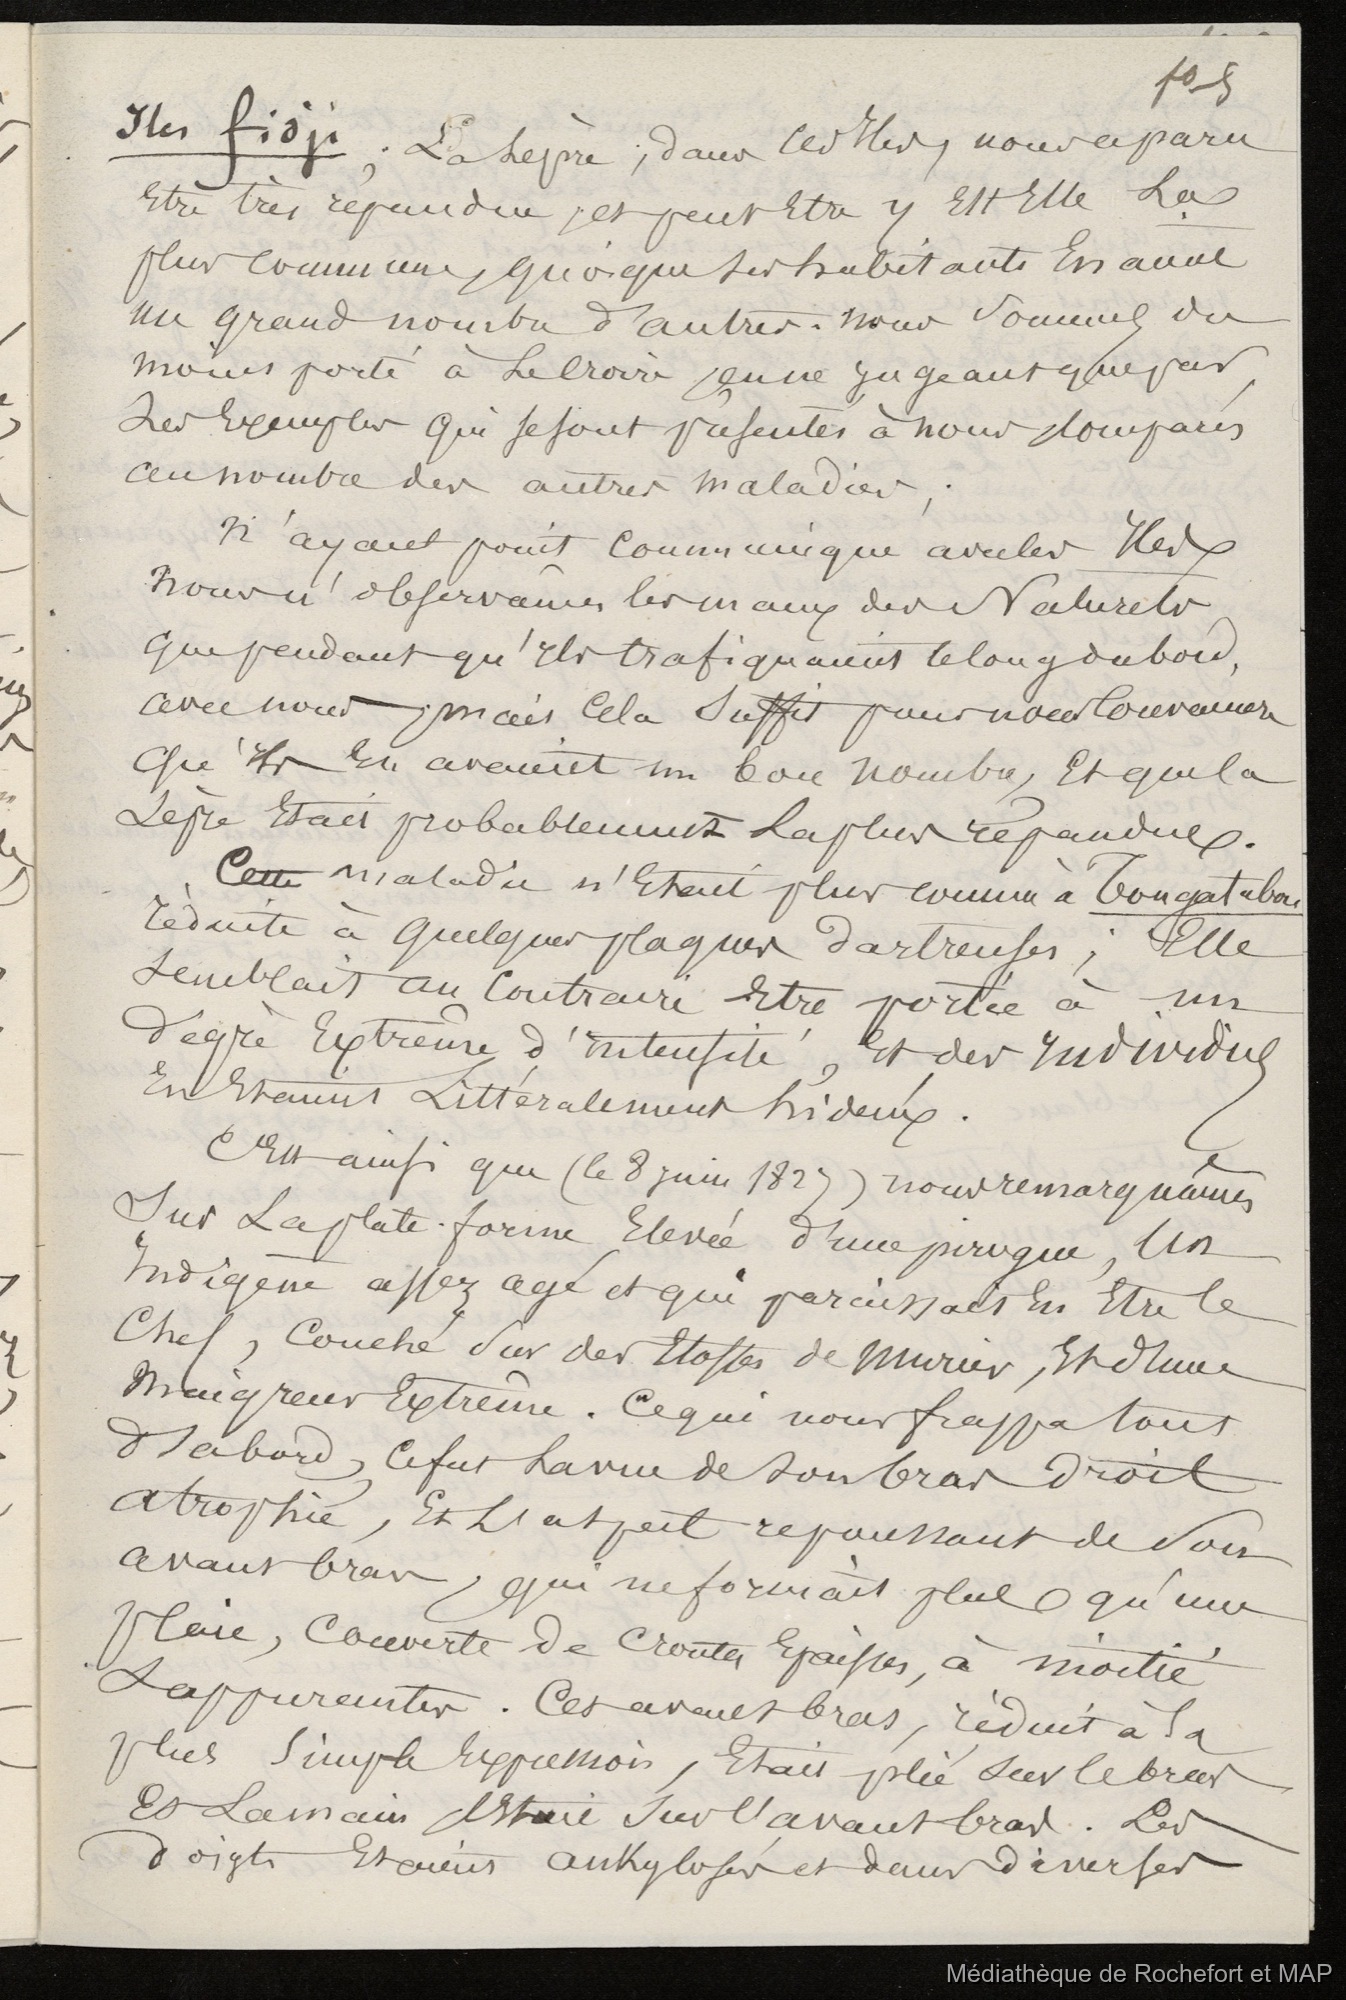 fo 5
Iles fidji ; La Lèpre, dans ces Iles, nous a paru
Etre très répandue, et peut Etre y Est Elle La
plus commune, quoique les habitants En aient
un grand nombre d'autres. nous sommes du
moins porté à Le Croire, en ne jugeant que par
Les Exemples qui se sont présentés à nous, comparés
au nombre des autres maladies ;
N'ayant point communiqué avec les Iles
nous n'observâmes les maux des Naturels
que pendant qu'Ils trafiquaient le long du bord,
avec nous, mais Cela Suffit pour nous Convaincre
Qu'Ils En avaient un bon nombre, Et que la
Lèpre Etait probablement La plus répandue.
Cette maladie n'Etait plus comme à Tongatabou
réduite à quelques plaques dartreuses ; Elle
semblait au Contraire Etre portée à un
dégrè Extrême d'intensité, Et des Individus
En Etaient Littéralement hideux.
C'Est ainsi que (le 8 juin 1827) nous remarquâmes
Sur La plate-forme Elevée d'une pirogue, Un
Indigène assez agé et qui paraissait En Etre le
Chef, Couché sur des Etoffes de Murier, Et d'une
Maigreur Extrême. Ce qui nous frappa tout
d'abord, Ce fut La vue de son bras droit
atrophié, Et L'aspect repoussant de son
avant bras, qui ne formait plus qu'une
plaie, Couverte de Croutes Epaisses, à moitié
Suppurantes. Cet avant bras, réduit à Sa
plus Simple Expression, Etait plié sur le bras
Et La main L'Etait Sur l'avant bras. Les
doigts Etaient ankylosés et dans diverses
Médiathèque de Rochefort et MAP